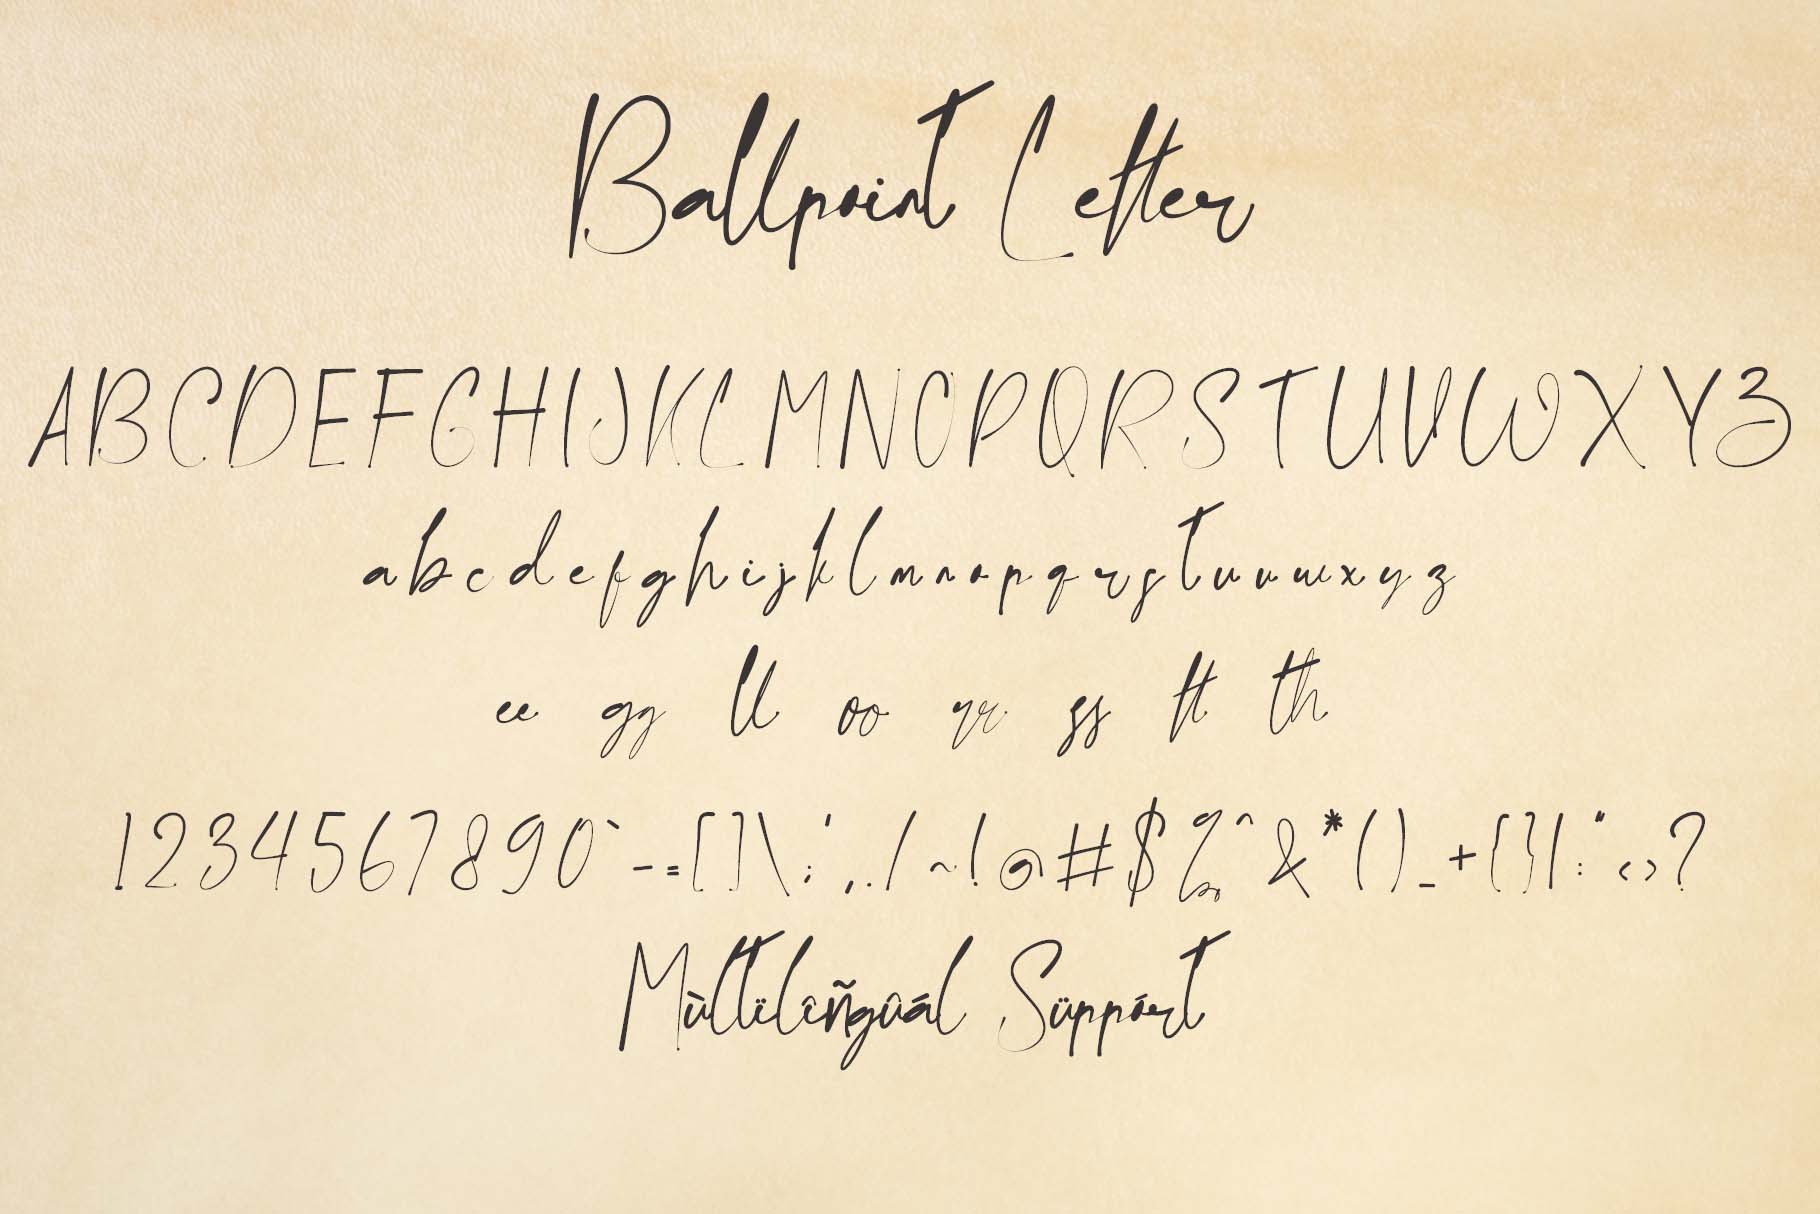 Ballpoint Letter
ABCDEFGHIJKLMNOPQRSTUVWXYZ
abcdefghijklmnopqrstuvwxyz
ee gg ll oo rr ss tt th
1234567890`-=[]\;',./~!@#$%^&*()_+{}|:"<>?
Mùltïlîñgûál Süppórt